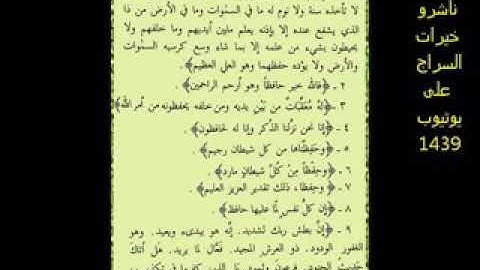 لا تأخذه سنة ولا نوم له ما في السموات وما في الأرض من ذا
الذي يشفع عنده إلا بإذنه يعلم مابين أيديهم وما خلفهم ولا
يحيطون بشيء من علمه إلا بما شاء وسع كرسيه السموات
والأرض ولا يؤده حفظهما وهو العلي العظيم﴾.
٢ ـ ﴿فالله خير حافظاً وهو أرحم الراحمين﴾.
٣ ـ ﴿له معقبات من بين يديه ومن خلفه يحفظونه من أمر الله﴾.
٤ ـ ﴿إنا نحن نزلنا الذكر وإنا له لحافظون﴾.
٥ ـ ﴿وحفظناها من كل شيطان رجيم﴾.
٦ ـ ﴿وحفظاً من كل شيطان مارد﴾.
٧ ـ ﴿وحفظاً، ذلك تقدير العزيز العليم﴾.
٨ ـ ﴿إن كل نفس لما عليها حافظ﴾.
٩ ـ ﴿إن بطش ربك لشديد. إنه هو يبدىء ويعيد. وهو
الغفور الودود. ذو العرش المجيد. فعّال لما يريد. هل أتاك
حديث الجنود. فرعون وثمود. بل الذين كفروا في تكذيب
ناشرو
خيرات
السراج
على
يوتيوب
1439